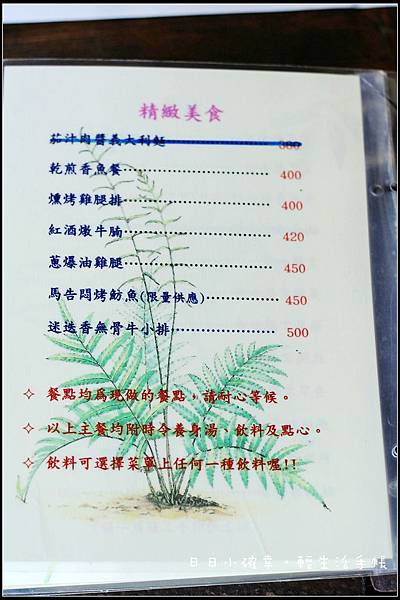 精緻美食
茄汁肉醬義大利麵 380
乾煎香魚餐 400
燻烤雞腿排 400
紅酒燉牛腩 420
蔥爆油雞腿 450
馬告悶烤魴魚(限量供應) 450
迷迭香無骨牛小排 500
✧ 餐點均為現做的餐點，請耐心等候。
✧ 以上主餐均附時令養身湯、飲料及點心。
✧ 飲料可選擇菜單上任何一種飲料喔!!
日日小確幸。輕生活手帳